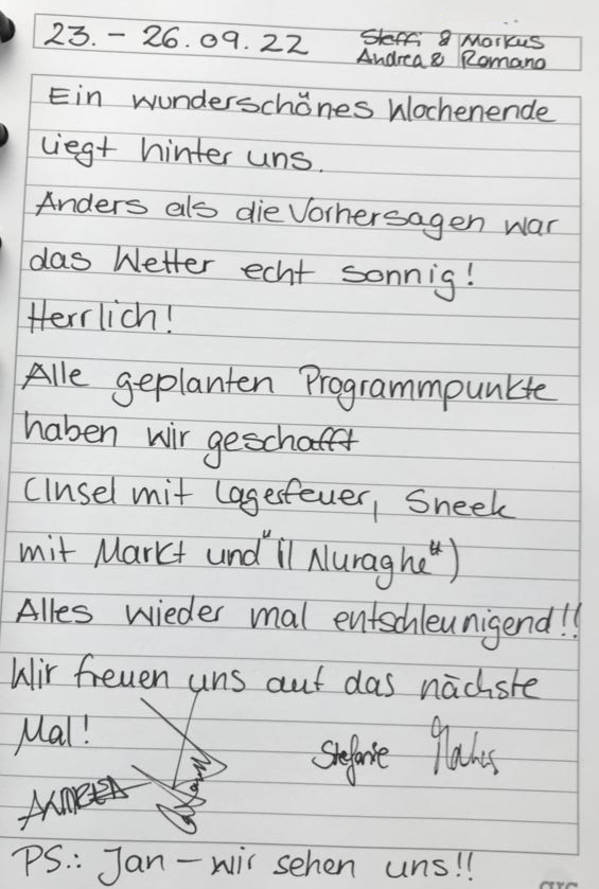 23. - 26.09.22
Steffi & Markus
Andrea & Romano
Ein wunderschönes Wochenende
liegt hinter uns.
Anders als die Vorhersagen war
das Wetter echt sonnig!
Herrlich!
Alle geplanten Programmpunkte
haben wir geschafft
(Insel mit Lagerfeuer, Sneek
mit Markt und "il Nuraghe")
Alles wieder mal entschleunigend!!
Wir freuen uns auf das nächste
Mal!
Stefanie Markus
ANDREA
PS.: Jan - wir sehen uns!!